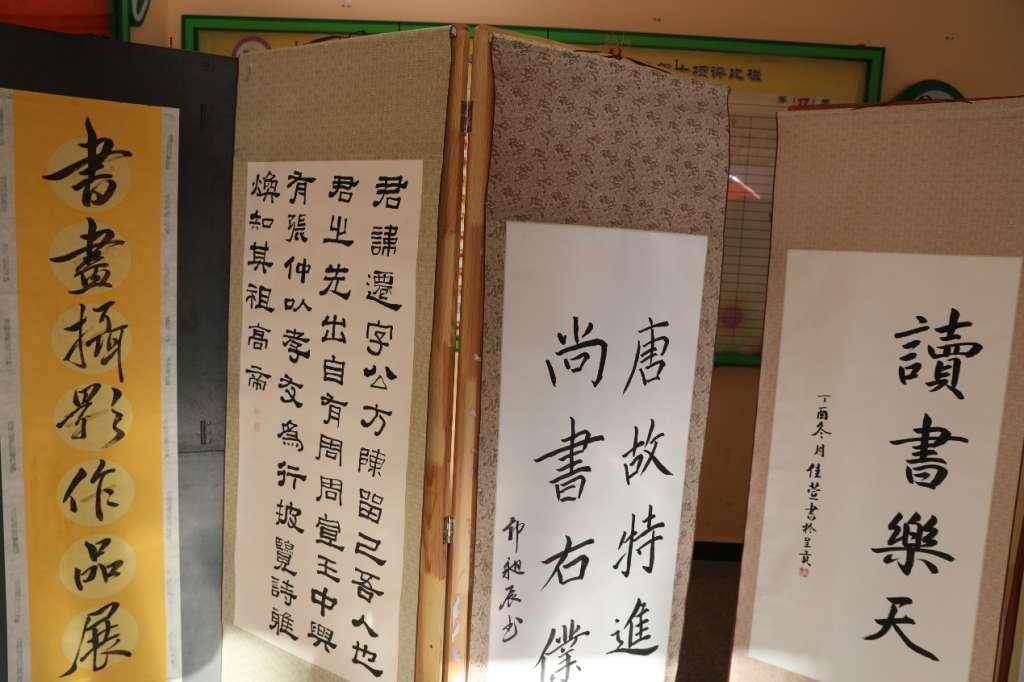 書畫攝影作品展
君諱遷字公方陳留己吾人也
君之先出自有周周宣王中興
有張仲以孝友為行披覽詩雅
煥知其祖高帝
唐故特進
尚書右僕
讀書樂天
丁酉冬月佳萱書於呈貢
十项评比栏